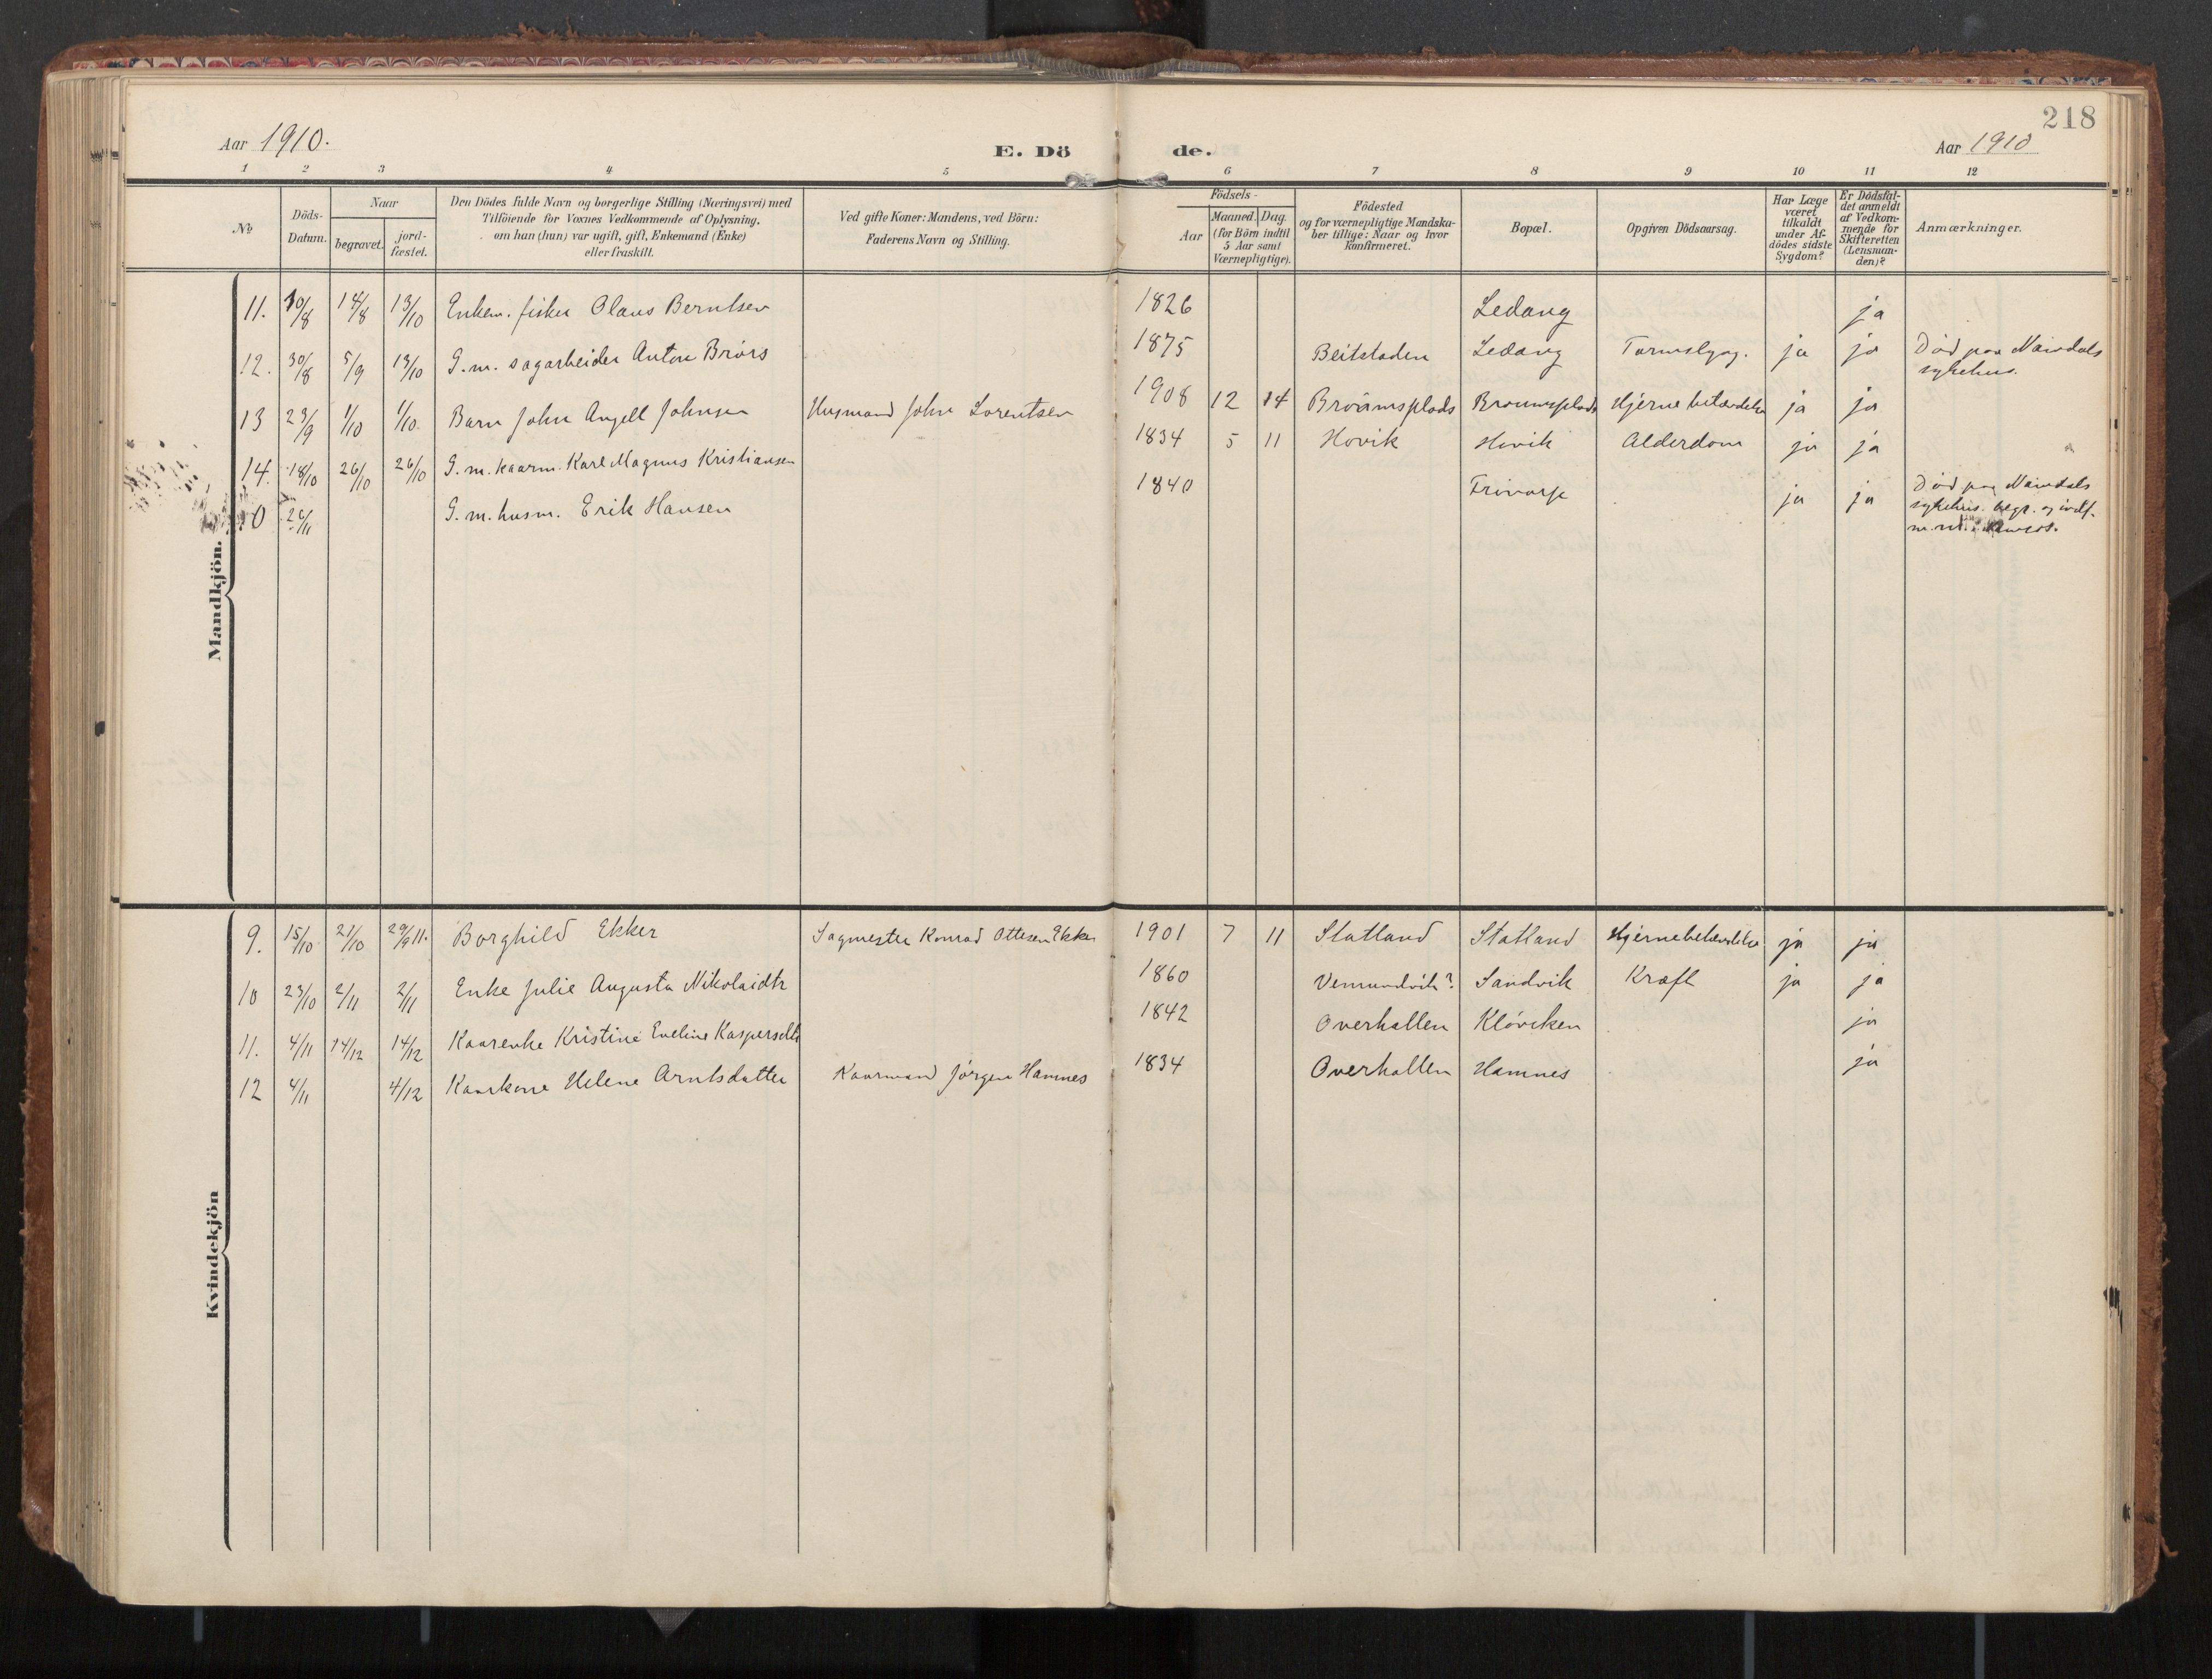 218
Aar 1910. E. Dö de. Aar 1910
1 2 3 4 5 6 7 8 9 10 11 12
№
Döds-
Datum.
Naar
begravet.
jord-
fæstet.
Den Dödes fulde Navn og borgerlige Stilling (Næringsvei) med
Tilföiende for Voxnes Vedkommende af Oplysning,
om han (hun) var ugift, gift, Enkemand (Enke)
eller fraskilt.
Ved gifte Koner: Mandens, ved Börn:
Faderens Navn og Stilling.
Födsels-
Aar
Maaned. Dag.
(for Börn indtil
5 Aar samt
Værnepligtige).
Födested
og for værnepligtige Mandska-
ber tillige: Naar og hvor
konfirmeret.
Bopæl.
Opgiven Dödsaarsag.
Har Læge
været
tilkaldt
under Af-
dödes sidste
Sygdom?
Er Dödsfal-
det anmeldt
af Vedkom-
mende for
Skifteretten
(Lensman-
den)?
Anmærkninger.
Mandkjön.
11. 10/8 14/8 13/10 Enkem. fisker Olaus Berntsen 1826 Ledang ja
12. 30/8 5/9 13/10 G. m. sagarbeider Anton Brörs 1875 Beitstaden Ledang ja ja Död paa Namdals
sykehus.
13 23/9 1/10 1/10 Barn John Angell Johnsen Husmand John Lorentsen 1908 12 14 Bröamsplads Hjernebetændelse ja ja
14. 18/10 26/10 26/10 G. m. kaarm. Karl Magnus Kristiansen 1834 5 11 Hovik Hovik Alderdom ja ja
0 26/11 G. m. husm. Erik Hansen 1840 ja ja Död paa Namdals
sykehus. begr. og
Kvindekjön
9. 15/10 21/10 29/9 11. Borghild Ekker Sagmester Konrad Ottesen Ekker 1901 7 11 Statland Statland Hjernebetændelse ja ja
10 23/10 2/11 2/11 Enke Julie Augusta Nikolaidtr 1860 Vemundvik? Sandvik Kræft ja ja
11. 4/11 14/12 14/12 Kaarenke Kristine Eveline Kaspersdtr 1842 Overhallen Klöviken ja
12 4/11 4/12 Kaarkone Helene Arntsdatter Kaarmand Jörgen Hamnes 1834 Overhallen Hamnes ja